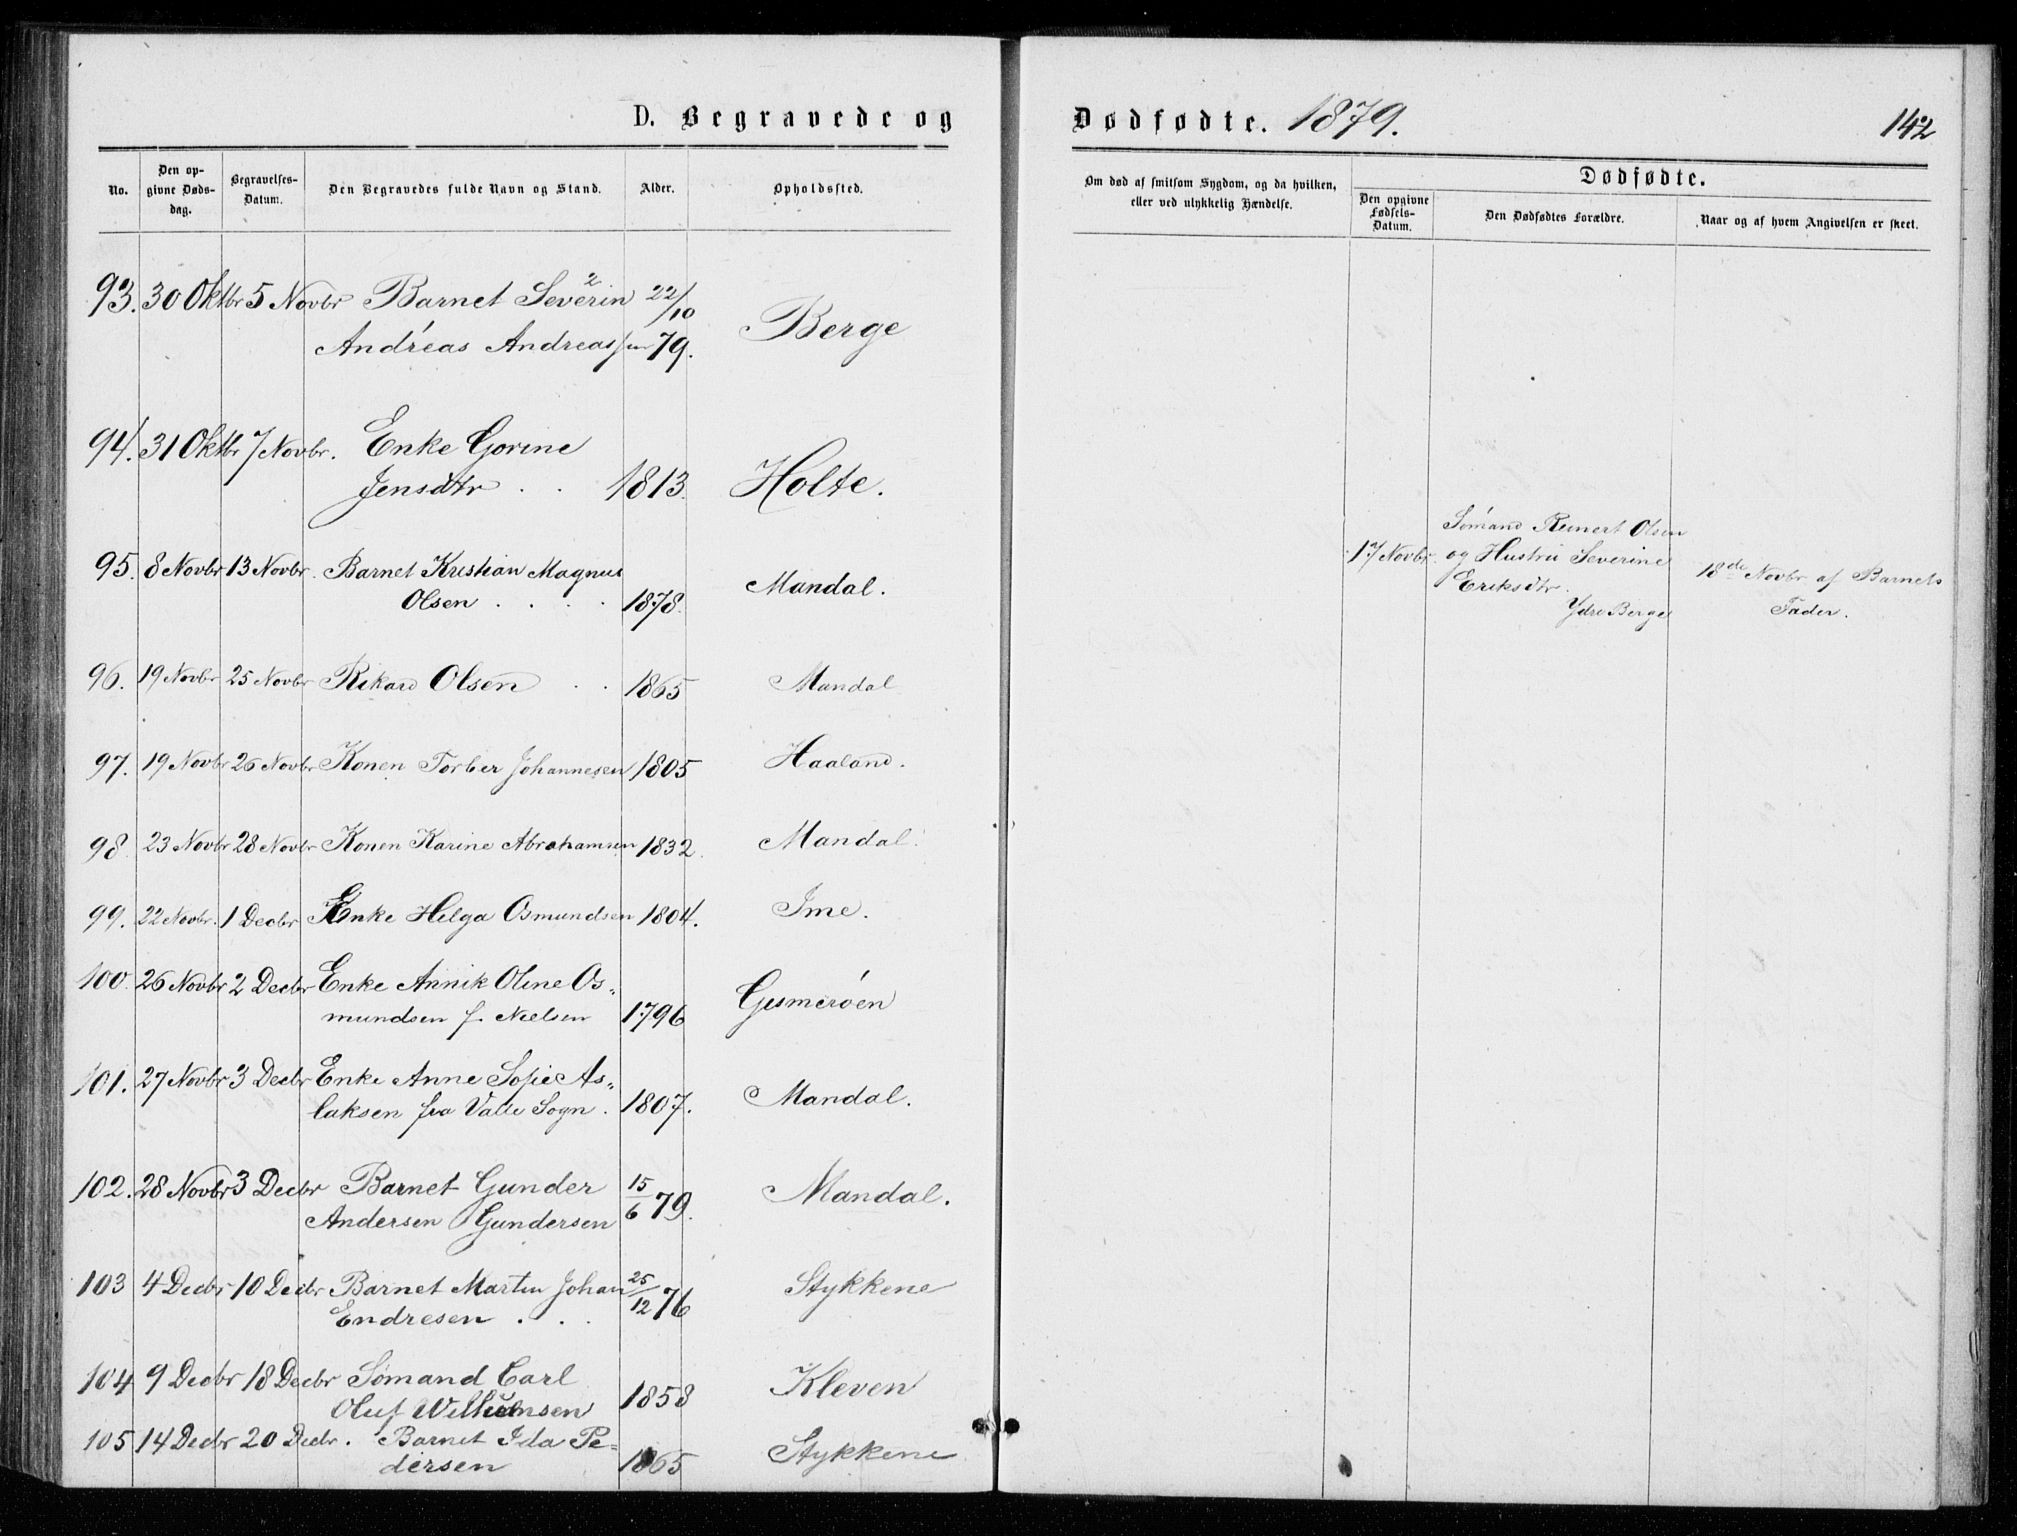 D. Begravede og
No.
Den op-
givne Døds-
dag.
Begravelses-
Datum.
Den Begravedes fulde Navn og Stand.
Alder.
Opholdssted.
93. 30 Oktbr 5 Novbr Barnet Severin 22/10
Andreas Andreassen 79. Berge
94. 31 Oktbr 7 Novbr. Enke Gorine
Jensdtr . . 1813. Holte.
95. 8 Novbr 13 Novbr. Barnet Kristian Magnus
Olsen . . . . 1878. Mandal.
96. 19 Novbr 25 Novbr Rikard Olsen . . 1865 Mandal
97. 19 Novbr 26 Novbr Konen Torber Johannesen 1805 Haaland.
98. 23 Novbr 28 Novbr Konen Karine Abrahamsen 1832. Mandal.
99. 22 Novbr. 1 Decbr Enke Helga Osmundsen 1804. Ime.
100. 26 Novbr 2 Decbr Enke Annik Oline Os-
mundsen f. Nielsen 1796 Gismerøen
101. 27 Novbr 3 Decbr Enke Anne Sofie As-
laksen fra Valle Sogn. 1807. Mandal.
102. 28 Novbr 3 Decbr Barnet Gunder 15/6 79. Mandal.
Andersen Gundersen
103 4 Decbr 10 Decbr Barnet Martin Johan 25/12 76 Stykkene
Endresen . . .
104 9 Decbr 18 Decbr Sømand Carl
Oluf Wilhelmsen 1858 Kleven
105 14 Decbr 20 Decbr. Barnet Ida Pe-
dersen 1865 Stykkene
Dødfødte. 1879.
142
Om død af smitsom Sygdom, og da hvilken,
eller ved ulykkelig Hændelse.
Dødfødte.
Den opgivne
Fødsels-
Datum.
Den Dødfødtes Forældre.
Naar og af hvem Angivelsen er skeet.
Sømand Reinert Olsen
17 Novbr. og Hustru Severine 18de Novbr af Barnets
Eriksdtr. Fader.
Ydre Berge